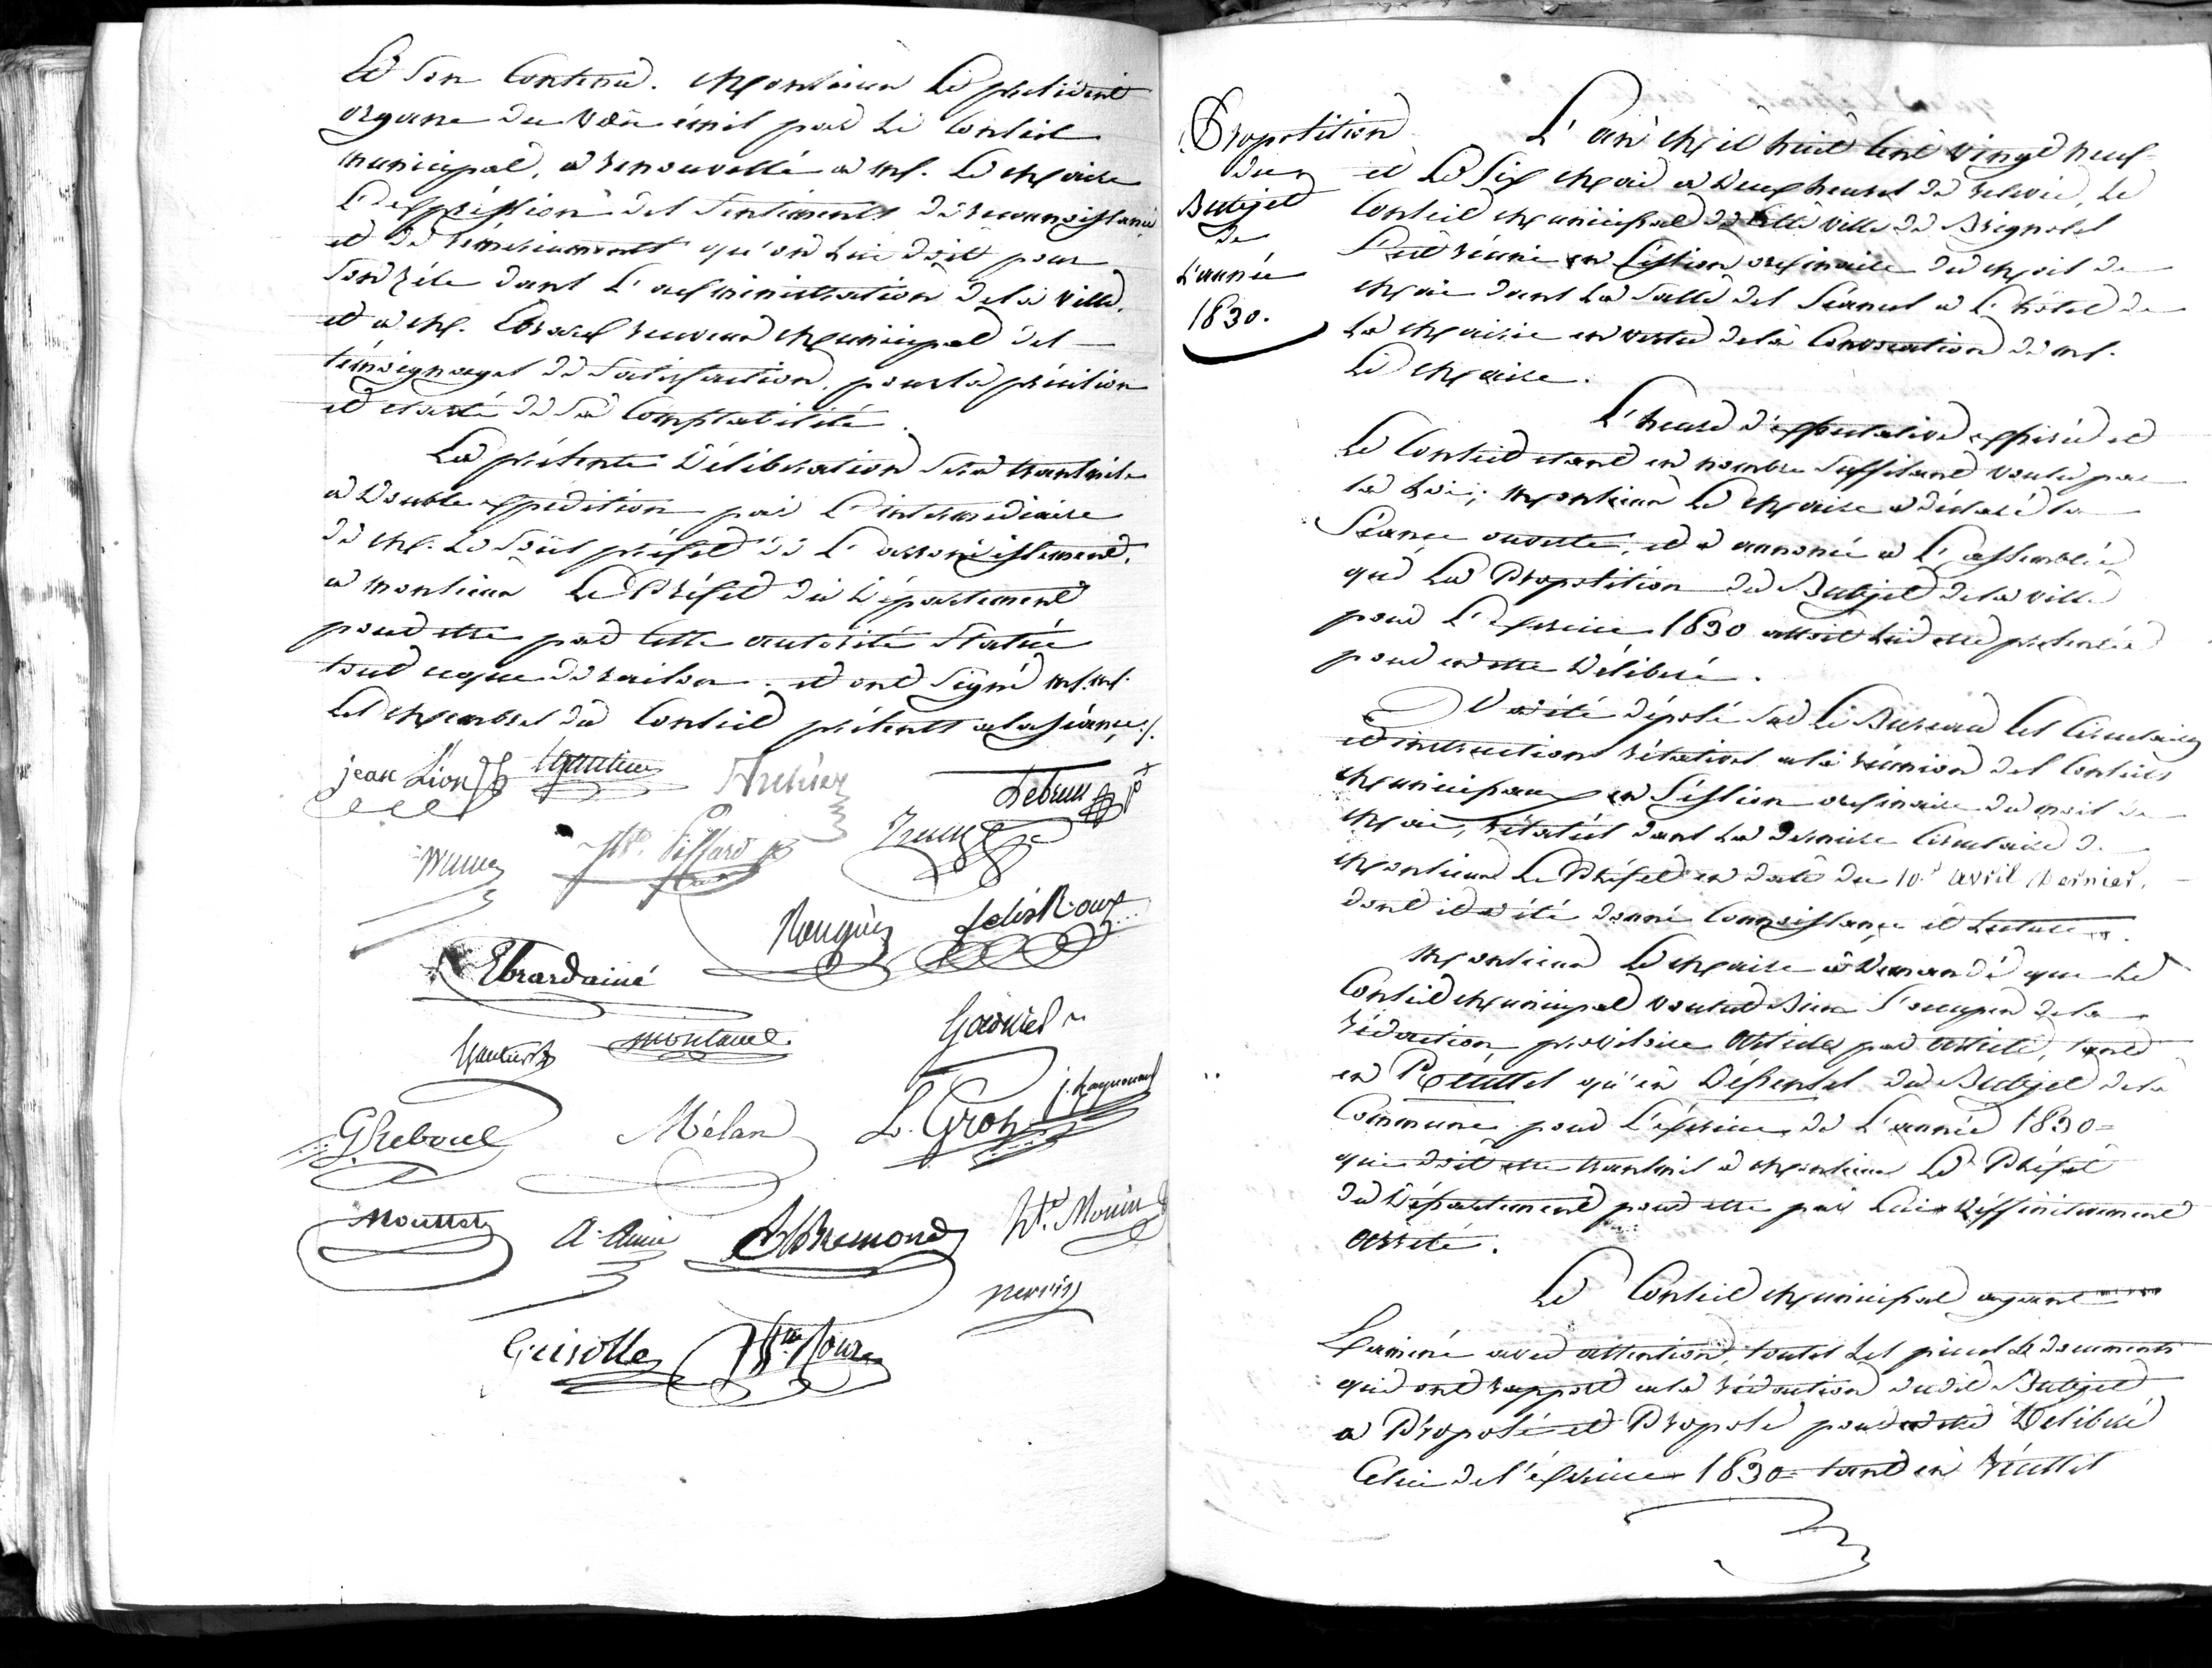 De Son Contenu. Monsieur Le président
organe du Vœu émit par Le Conseil
municipal, a renouvellé a mr. Le Maire
L'expression des Sentiments de reconnoissance
et de remerciements qu'on Lui doit pour
Son Zéle dans L'administration de la Ville.
et a Mr. Ebrard receveur Municipal des
témoignages de Satisfaction, pour la précition
et clarté de Sa Comptabilité.
La présente Délibération Sera transmise
a Double expédition par L'intermediaire
de Mr. Le Sous préfet de L'arrondissement,
a monsieur Le Préfet du Département
pour etre par Cette autorité Statué
tout ceque de raison. et ont Signé mr. mr.
Les Membres du Conseil présents a la Séance ./.
jean Lion Gautier Archier Lebrun
hte. Piffard
Rougier felix Roux
Ebrard ainé
Gautier montaud Garnier
G Reboul Mélan L. Gros j. Raynouard
Mouttet Bremond hte. Morin
Guisolle
Proposition
du
Budjet
de
L'année
1830.
L'an Mil huit Cent vingt neuf
et Le Six Mai a Deux heures de relevée, Le
Conseil Municipal de Cette Ville de Brignoles
S'est réuni en Session ordinaire du Mois de
Mai dans La Salle des Séances a L'hôtel de
La Mairie en vertu de la Convocation de mr.
Le Maire.
L'heure d'expectative expirée et
Le Conseil etant en nombre Suffisant voulu par
La Loi; Monsieur Le Maire a déclaré la
Séance ouverte, et a annoncé a L'assemblée
que La Proposition du Budjet de la Ville
pour L'exercice 1830 alloit lui etre présentée
pour en etre Délibéré.
Il a été déposé Sur Le Bureau Les Circulaires
et instructions rélatives a la réunion des Conseils
Municipaux en Session ordinaire du mois de
Mai, rélatés dans La derniere Circulaire de
Monsieur Le Préfet en date du 10 avril dernier,
dont il a été donné Connoissance et Lecture.
Monsieur Le Maire a Demandé que Le
Conseil Municipal voulut Bien S'occuper de la
rédaction provisoire article par article, tant
en Recettes qu'en Dépenses du Budjet de la
Commune pour L'éxercice de L'année 1830=
qui doit etre transmis a Monsieur Le Préfet
du Département pour etre par Lui Déffinitivement
arreté.
Le Conseil Municipal ayant
Examiné avec attention, toutes Les pieces & documents
qui ont rapport a la rédaction dudit Budjet
a Proposé et Propose pour en etre Délibéré
Celui de l'éxercice 1830= tant en récettes